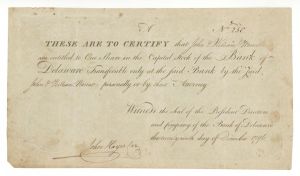 No. 250
THESE ARE TO CERTIFY that John & William
are entitled to One Share in the Capital Stock of the Bank of
Delaware Transferable only at the said Bank by the said
John & William personally or by their Attorney
Witness the seal of the President Directors
and Company of the Bank of Delaware
day of 1796
John